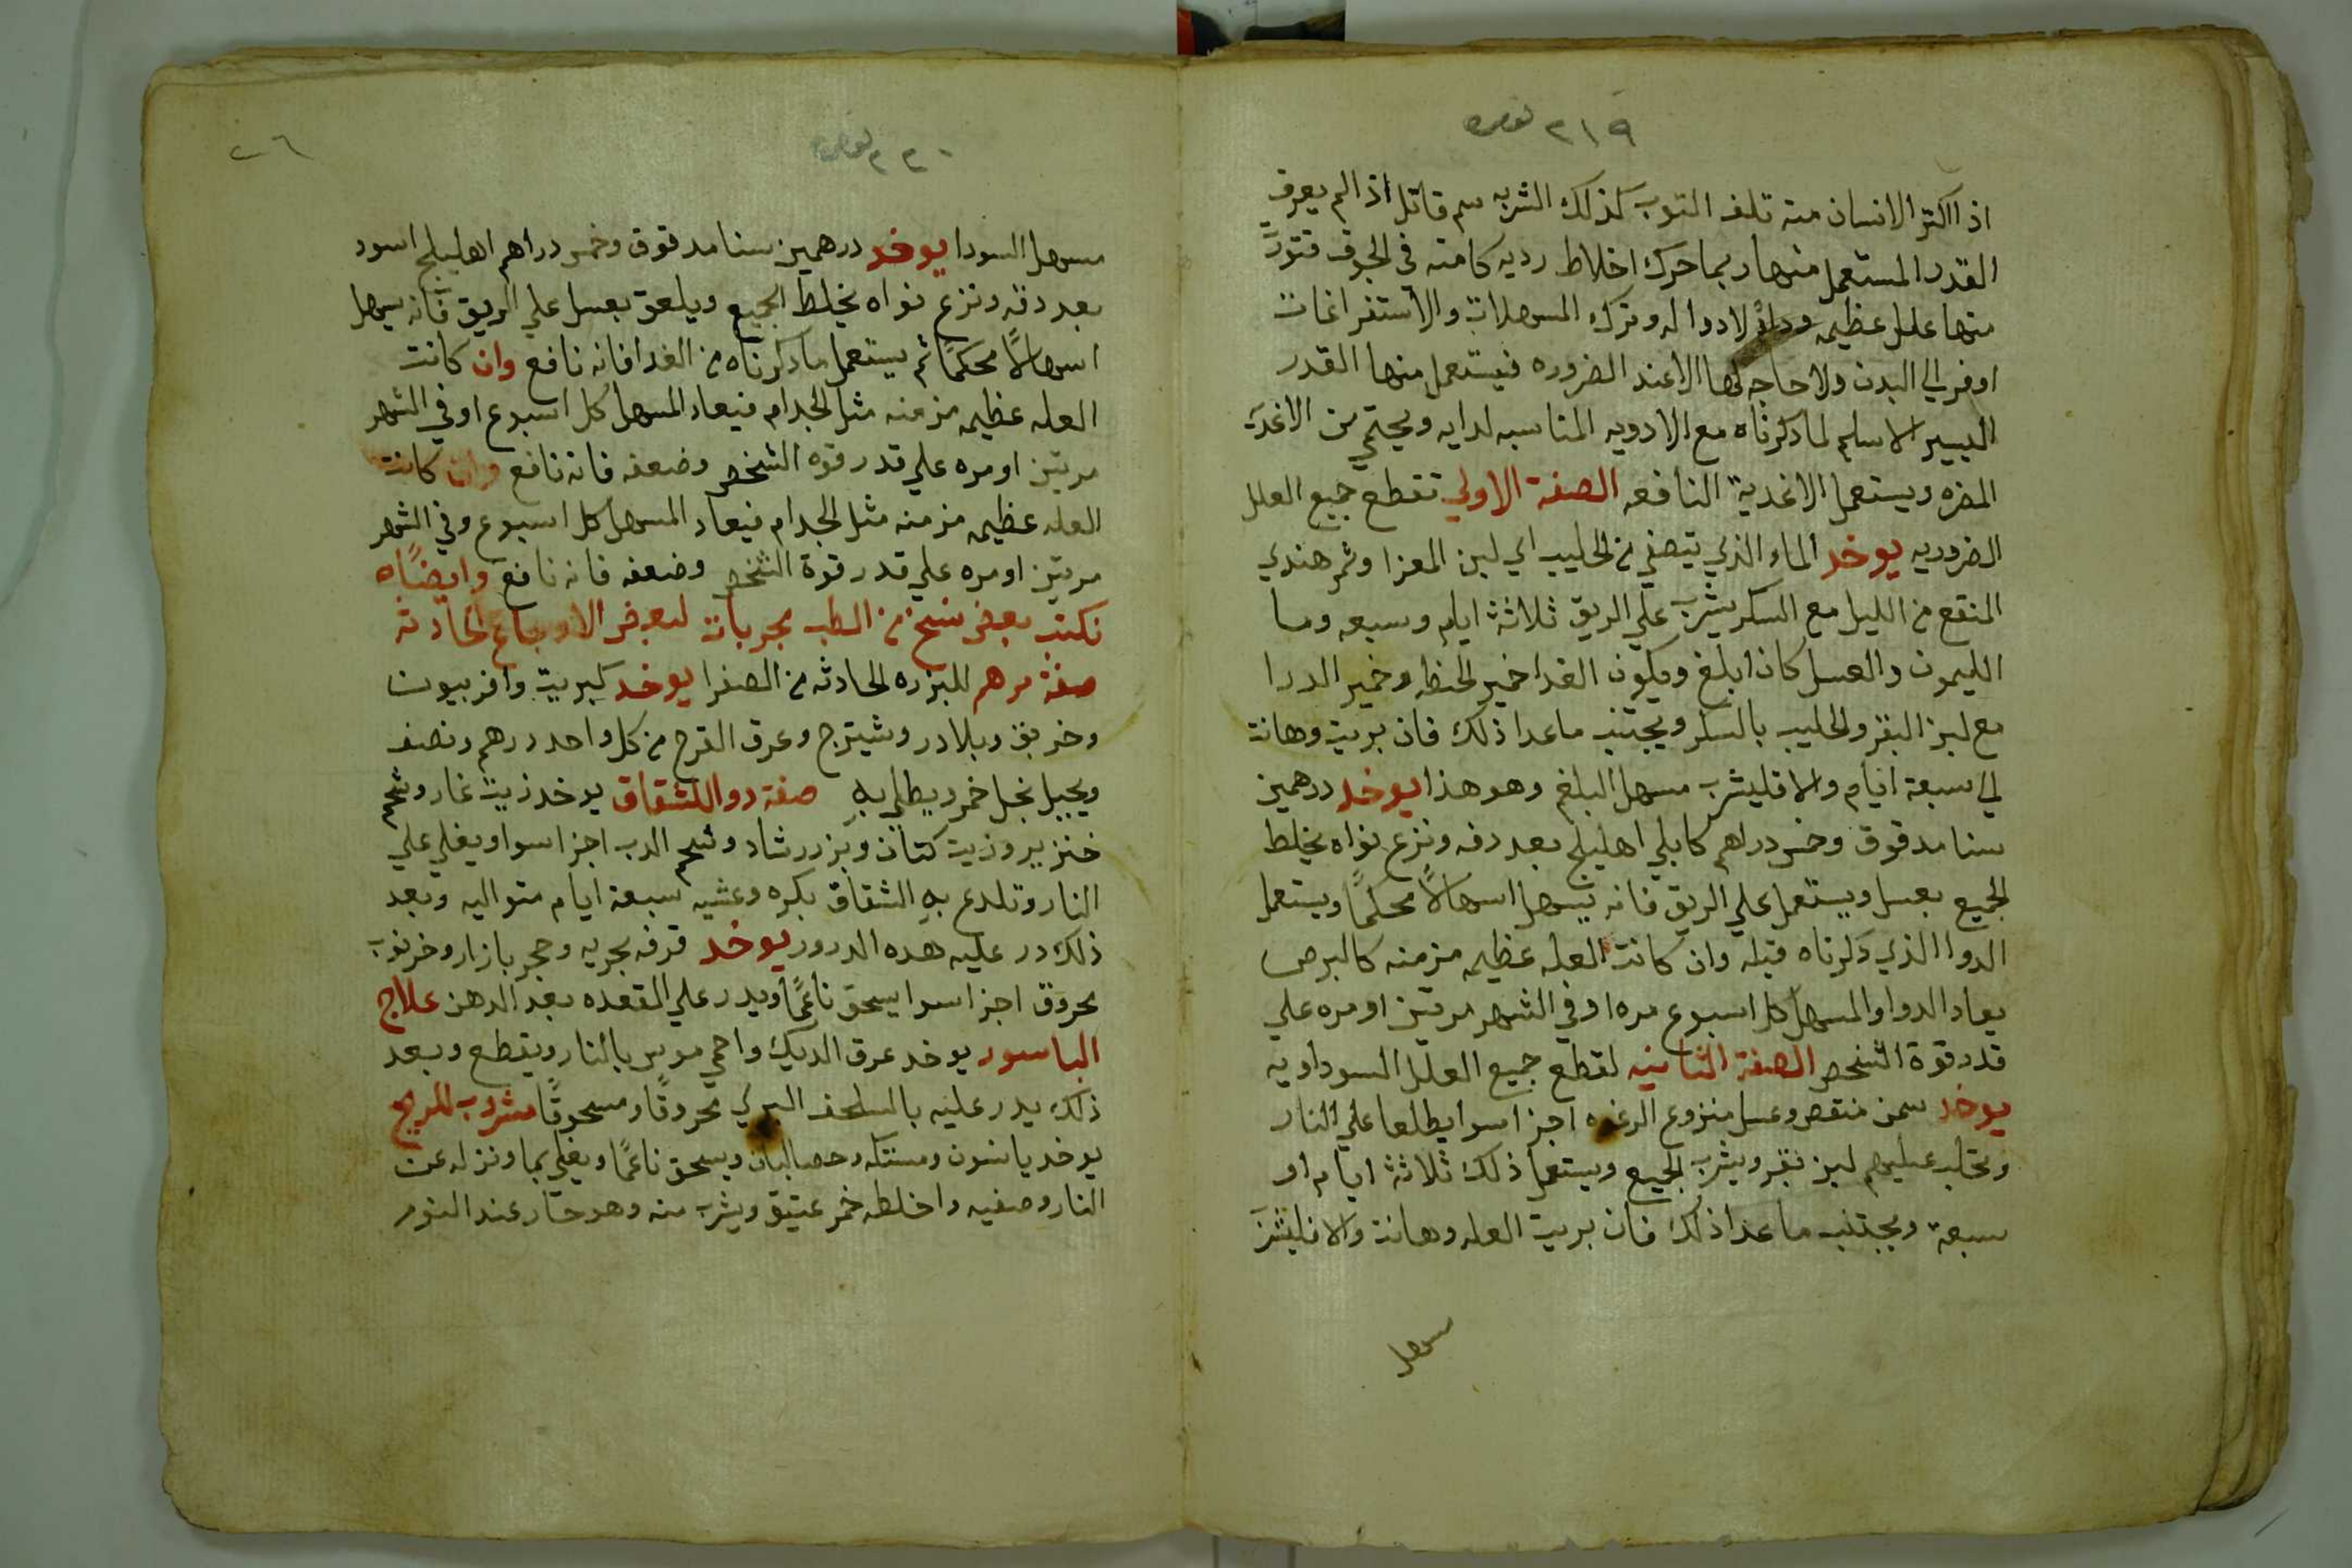 ٢١٩
اذا اكتر الانسان منه تلف التوب كذلك الشربه سم قاتل اذا لم يعرف
القدر المستعمل منها ربما حرك اخلاط رديه كامنه في الجوف فتورث
منها علل عظيمه ودا لا دوا له وترك المسهلات والاستفراغات
اوفر الي البدن ولا حاجه لها الا عند الضروره فيستعمل منها القدر
اليسير الاسلم لما ذكرناه مع الادويه المناسبه لدايه ويحتمي من الاغديه
المضره ويستعمل الاغدية النافعه الصفة الاولي تقطع جميع العلل
الضروريه يوخد الماء الذي يتصفي من الحليب اي لبن المعزا وتمر هندي
المنقع من الليل مع السكر يشرب علي الريق ثلاثة ايام وسبعه وما
الليمون والعسل كان ابلغ ويكون الغدا خمير الحنطه وخمير الدرا
مع لبن البقر والحليب بالسكر ويجتنب ماعدا ذلك فان بريت وهانت
الي سبعة ايام والا فليشرب مسهل البلغم وهو هذا يوخد درهمين
سنا مدقوق وخمس دراهم كابلي اهليلج بعد دقه ونزع نواه يخلط
الجميع بعسل ويستعمل علي الريق فانه يسهل اسهالاً محكمًا ويستعمل
الدوا الذي ذكرناه قبله وان كانت العله عظيمه مزمنه كالبرص
يعاد الدوا والمسهل كل اسبوع مره او في الشهر مرتين او مره علي
قدر قوة الشخص الصفة الثانيه لقطع جميع العلل السوداويه
يوخد سمن وعسل منزوع الرغوه اجزا سوا يطلعا علي النار
ويحلب عليهم لبن بقر ويشرب الجميع ويستعمل ذلك ثلاثة ايام او
سبعة ويجتنب ماعدا ذلك فان بريت العله وهانت والا فليشرب
مسهل
٢٢٠
٢٦
مسهل السودا يوخد درهمين سنا مدقوق وخمس دراهم اهليلج اسود
بعد دقه ونزع نواه يخلط الجميع ويلعق بعسل علي الريق فانه يسهل
اسهالاً محكمًا ثم يستعمل ما ذكرناه من الغدا فانه نافع وان كانت
العله عظيمه مزمنه مثل الجدام فيعاد المسهل كل اسبوع او في الشهر
مرتين او مره علي قدر قوه الشخص وضعفه فانه نافع وان كانت
العله عظيمه مزمنه مثل الجدام فيعاد المسهل كل اسبوع وفي الشهر
مرتين او مره علي قدر قوة الشخص وضعفه فانه نافع وايضًا
نكتب بعض نسخ من الطب مجربات لبعض الاوجاع الحادثه
صفة مرهم للبزره الحادثه من الصفرا يوخد كبريت وافربيون
وخربق وبلادر وشيترج وعرق القرح من كل واحد درهم ونصف
ويجبل بخل خمر ويطلي به صفة دوا للشقاق يوخد زيت غار وشحم
خنزير وزيت كتان وبزر رشاد وشحم الدب اجزا سوا ويغلي علي
النار وتلدع به الشقاق بكره وعشيه سبعة ايام متواليه وبعد
ذلك در عليه هده الدرور يوخد قرفه بحريه وحجر بازار وخرنوب
محروق اجزا سوا يسحق ناعمًا ويدر علي المقعده بعد الدهن علاج
الباسور يوخد عرق الديك واحمي موس بالنار ويقطع وبعد
ذلك يدر عليه بالسلحف البري محروقًا ومسحوقًا مشروب للريح
يوخد يانسون ومستكه وحصالبان ويسحق ناعمًا ويغلي بما ونزله عن
النار وصفيه واخلطه خمر عتيق ويشرب منه وهو حار عند النوم